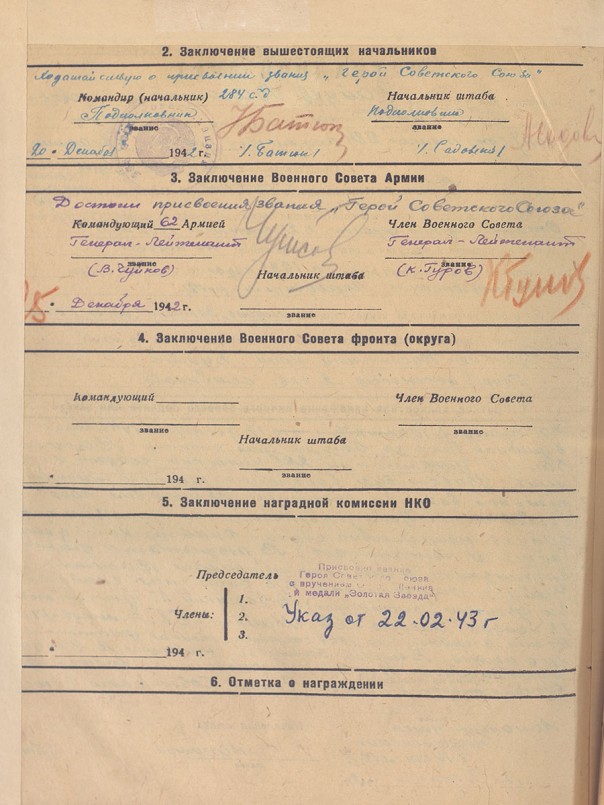 2. Заключение вышестоящих начальников
Ходатайствую о присвоении звания „Герой Советского Союза"
Командир (начальник) 284 с.д
Начальник штаба
Подполковник
Подполковник
звание
звание
20 • Декабря 1942 г.
/. Батюк/
Н Батюк
3. Заключение Военного Совета Армии
Достоин присвоения звания „Герой Советского Союза"
Командующий 62 Армией
Член Военного Совета
Генерал-Лейтенант
Генерал-Лейтенант
звание
звание
(В.Чуйков)
Начальник штаба
(К.Гуров)
КГуров
• Декабря 1942 г.
звание
4. Заключение Военного Совета фронта (округа)
Командующий
Член Военного Совета
звание
звание
Начальник штаба
звание
194 г.
5. Заключение наградной комиссии НКО
Председатель
Присвоено звание
Героя Советского Союза
с вручением
и медали „Золотая Звезда"
Члены:
1.
2.
3.
Указ от 22.02.43 г
194 г.
6. Отметка о награждении